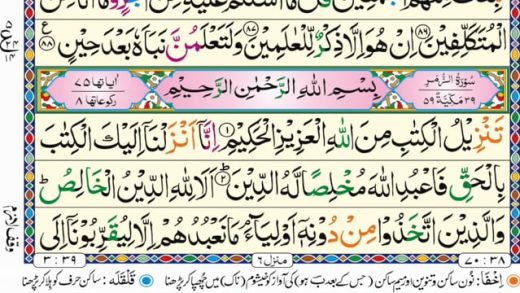 قُلْ مَآ اَسْـَٔلُكُمْ عَلَيْهِ مِنْ اَجْرٍ وَّمَآ اَنَا مِنَ
الْمُتَكَلِّفِيْنَ ﴿٨٦﴾ اِنْ هُوَ اِلَّا ذِكْرٌ لِّلْعٰلَمِيْنَ ﴿٨٧﴾ وَلَتَعْلَمُنَّ نَبَاَهٗ بَعْدَ حِيْنٍ ﴿٨٨﴾
سُوْرَةُ الزُّمَرِ ٣٩ مَكِّيَّةٌ ٥٩ بِسْمِ اللّٰهِ الرَّحْمٰنِ الرَّحِيْمِ اٰيَاتُهَا ٧٥ رُكُوْعَاتُهَا ٨
تَنْزِيْلُ الْكِتٰبِ مِنَ اللّٰهِ الْعَزِيْزِ الْحَكِيْمِ ﴿١﴾ اِنَّآ اَنْزَلْنَآ اِلَيْكَ الْكِتٰبَ
بِالْحَقِّ فَاعْبُدِ اللّٰهَ مُخْلِصًا لَّهُ الدِّيْنَ ﴿٢﴾ اَلَا لِلّٰهِ الدِّيْنُ الْخَالِصُ ط
وَالَّذِيْنَ اتَّخَذُوْا مِنْ دُوْنِهٖٓ اَوْلِيَآءَ مَا نَعْبُدُهُمْ اِلَّا لِيُقَرِّبُوْنَآ اِلَى
٣٨ : ٧٠ منزل ٦ ٣٩ : ٣
اِخفَا: نُون ساکن و تنوین اور میم ساکن (جس کے بعد ب ہو) کی آواز کو خیشوم (ناک) میں چُھپا کر پڑھنا قَلقَلَه: ساکن حرف کو ہلا کر پڑھنا